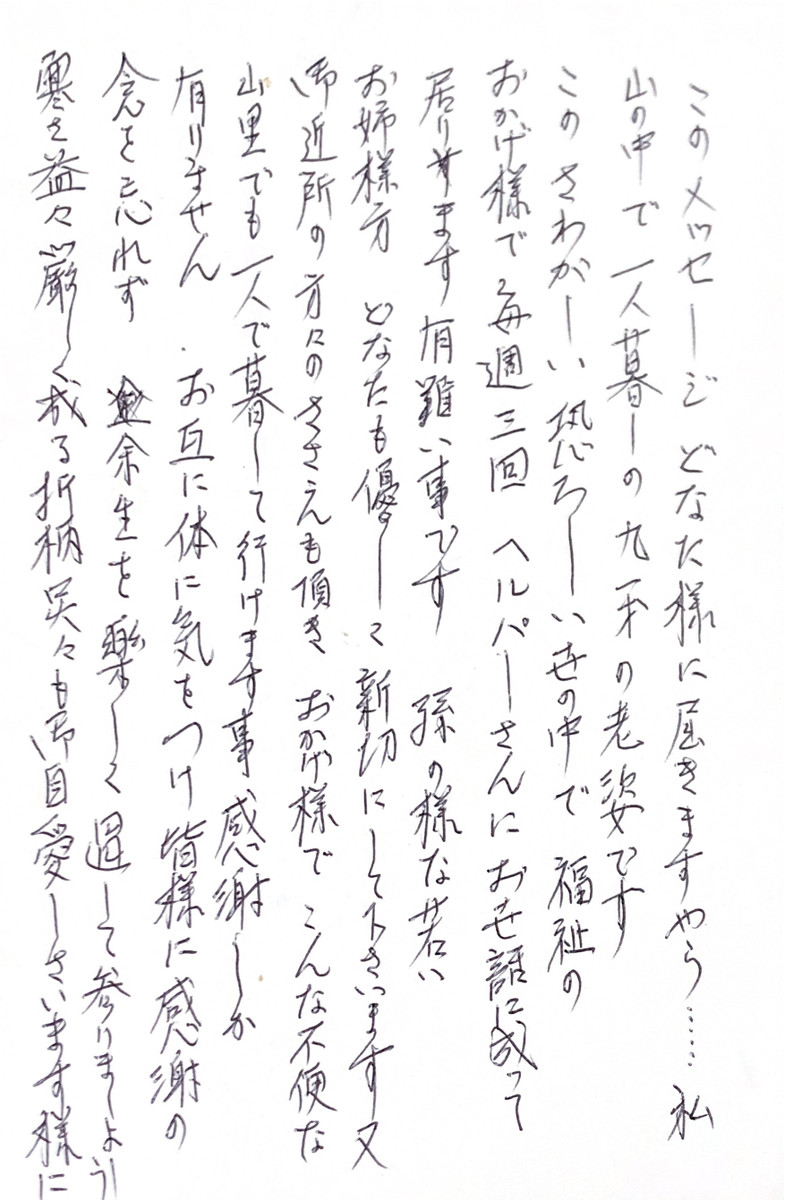 このメッセージ どなた様に届きますやう…… 私
山の中で一人暮しの九一才の老婆です
このさわがしい恐ろしい世の中で 福祉の
おかげ様で毎週三回 ヘルパーさんにお世話に成って
居りすます 有難い事です 孫の様な若い
お婦様方 どなたも優しく 新切にして下さいます 又
御近所の方にのささえも頂き おかげ様で こんな不便な
山里でも一人で暮して行けます事 感謝しか
有りません お互に体に気をつけ 皆様に感謝の
念を忘れず 余生を楽しく過して参りましょう
寒さ益々厳しく成る折柄 呉々も御自愛しさいます様に